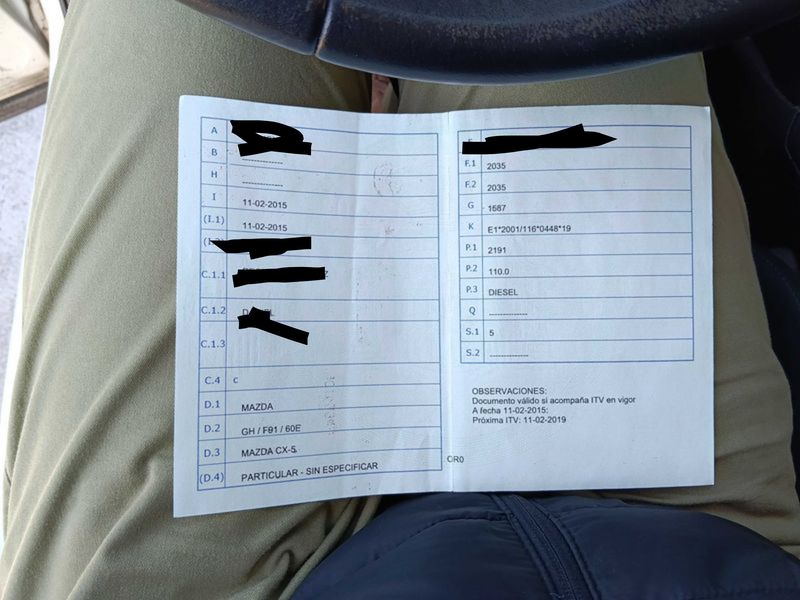 A
B -------------
H -------------
I 11-02-2015
(I.1) 11-02-2015
C.1.1
C.1.2
C.1.3
C.4 c
D.1 MAZDA
D.2 GH / F91 / 60E
D.3 MAZDA CX-5
(D.4) PARTICULAR - SIN ESPECIFICAR
F.1 2035
F.2 2035
G 1587
K E1*2001/116*0448*19
P.1 2191
P.2 110.0
P.3 DIESEL
Q -------------
S.1 5
S.2 -------------
OBSERVACIONES:
Documento válido si acompaña ITV en vigor
A fecha 11-02-2015:
Próxima ITV: 11-02-2019
OR0